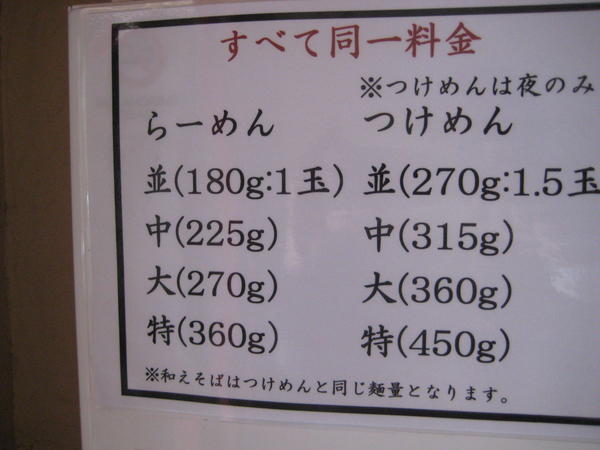 すべて同一料金
※つけめんは夜のみ
らーめん つけめん
並(180g:1玉) 並(270g:1.5玉
中(225g) 中(315g)
大(270g) 大(360g)
特(360g) 特(450g)
※和えそばはつけめんと同じ麺量となります。